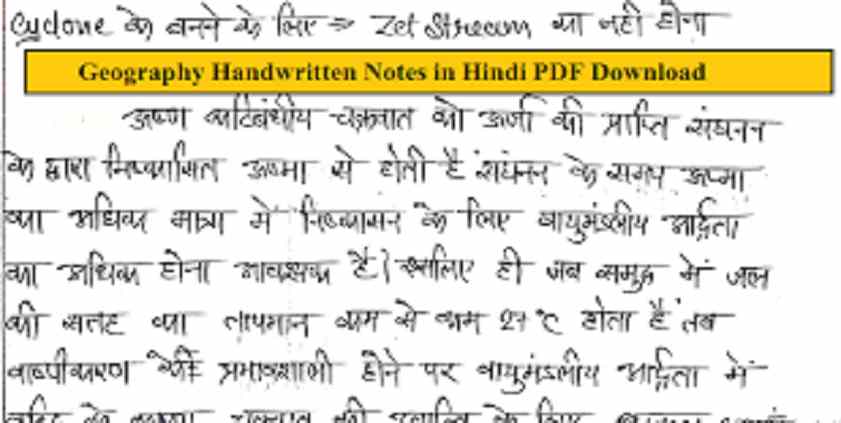 Cyclone के बनने के लिए ⇒ Zet Stream का नही होना
Geography Handwritten Notes in Hindi PDF Download
ऊष्ण कटिबंधीय चक्रवात को ऊर्जा की प्राप्ति संघनन
के द्वारा निष्कासित ऊष्मा से होती है संघनन के समय ऊष्मा
का अधिक मात्रा में निष्कासन के लिए वायुमंडलीय आर्द्रता
का अधिक होना आवश्यक है। इसलिए ही जब समुद्र में जल
की सतह का तापमान कम से कम 27°C होता है तब
वाष्पीकरण के प्रभावशाली होने पर वायुमंडलीय आर्द्रता में
के कारण चक्रवात की उत्पत्ति के लिए